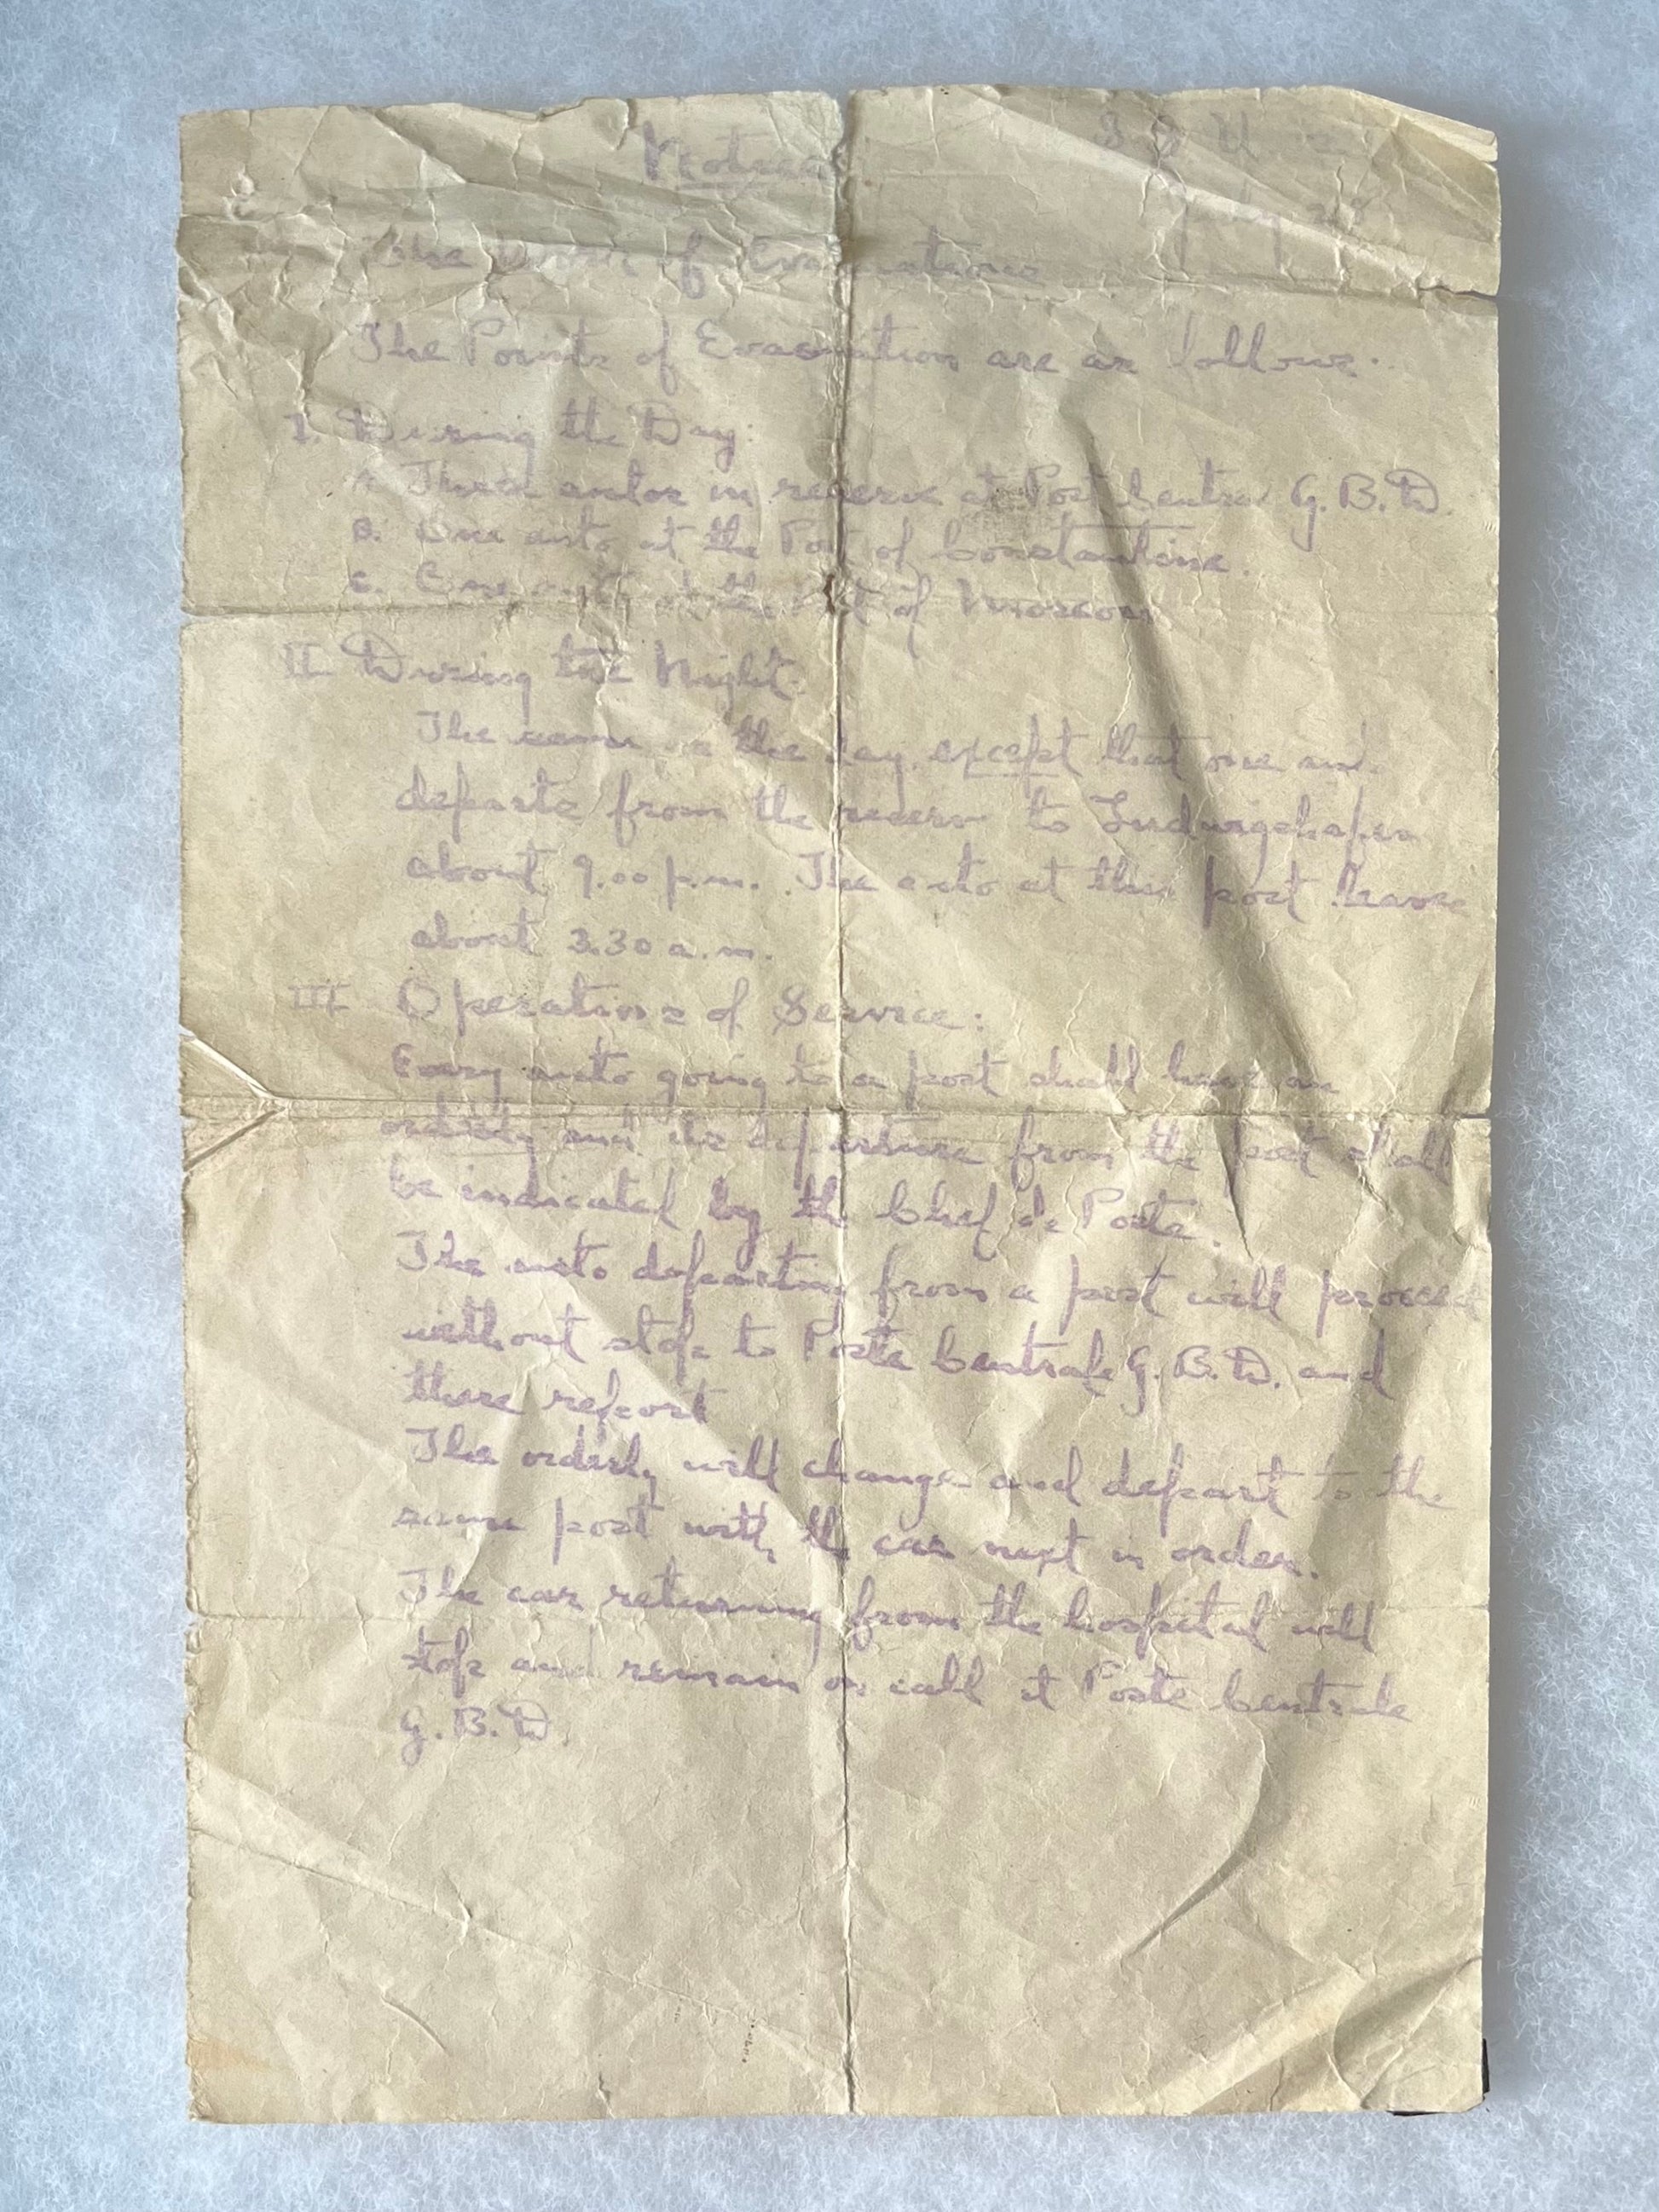 Notice
S S U
July 28
The of Evacuations
The Points of Evacuation are as follows.
I. During the Day:
A. Three autos in reserve at Post Centra G. B. D.
B. One auto at the Post of Constantine.
C. One auto at the Post of
II During the Night.
The same as the day, except that one aut.
departs from the reserve to Ludwigshafen
about 9.00 p.m. The auto at this post leave
about 3.30 a.m.
III Operations of Service:
Every auto going to a post shall have an
orderly and its departure from the post shall
be indicated by the Chef de Poste.
The auto departing from a post will proceed
without stop to Poste Centrale G. B. D. and
there report
The orderly will change and depart to the
same post with the car next in order.
The car returning from the hospital will
stop and remain on call at Poste Centrale
G. B. D.